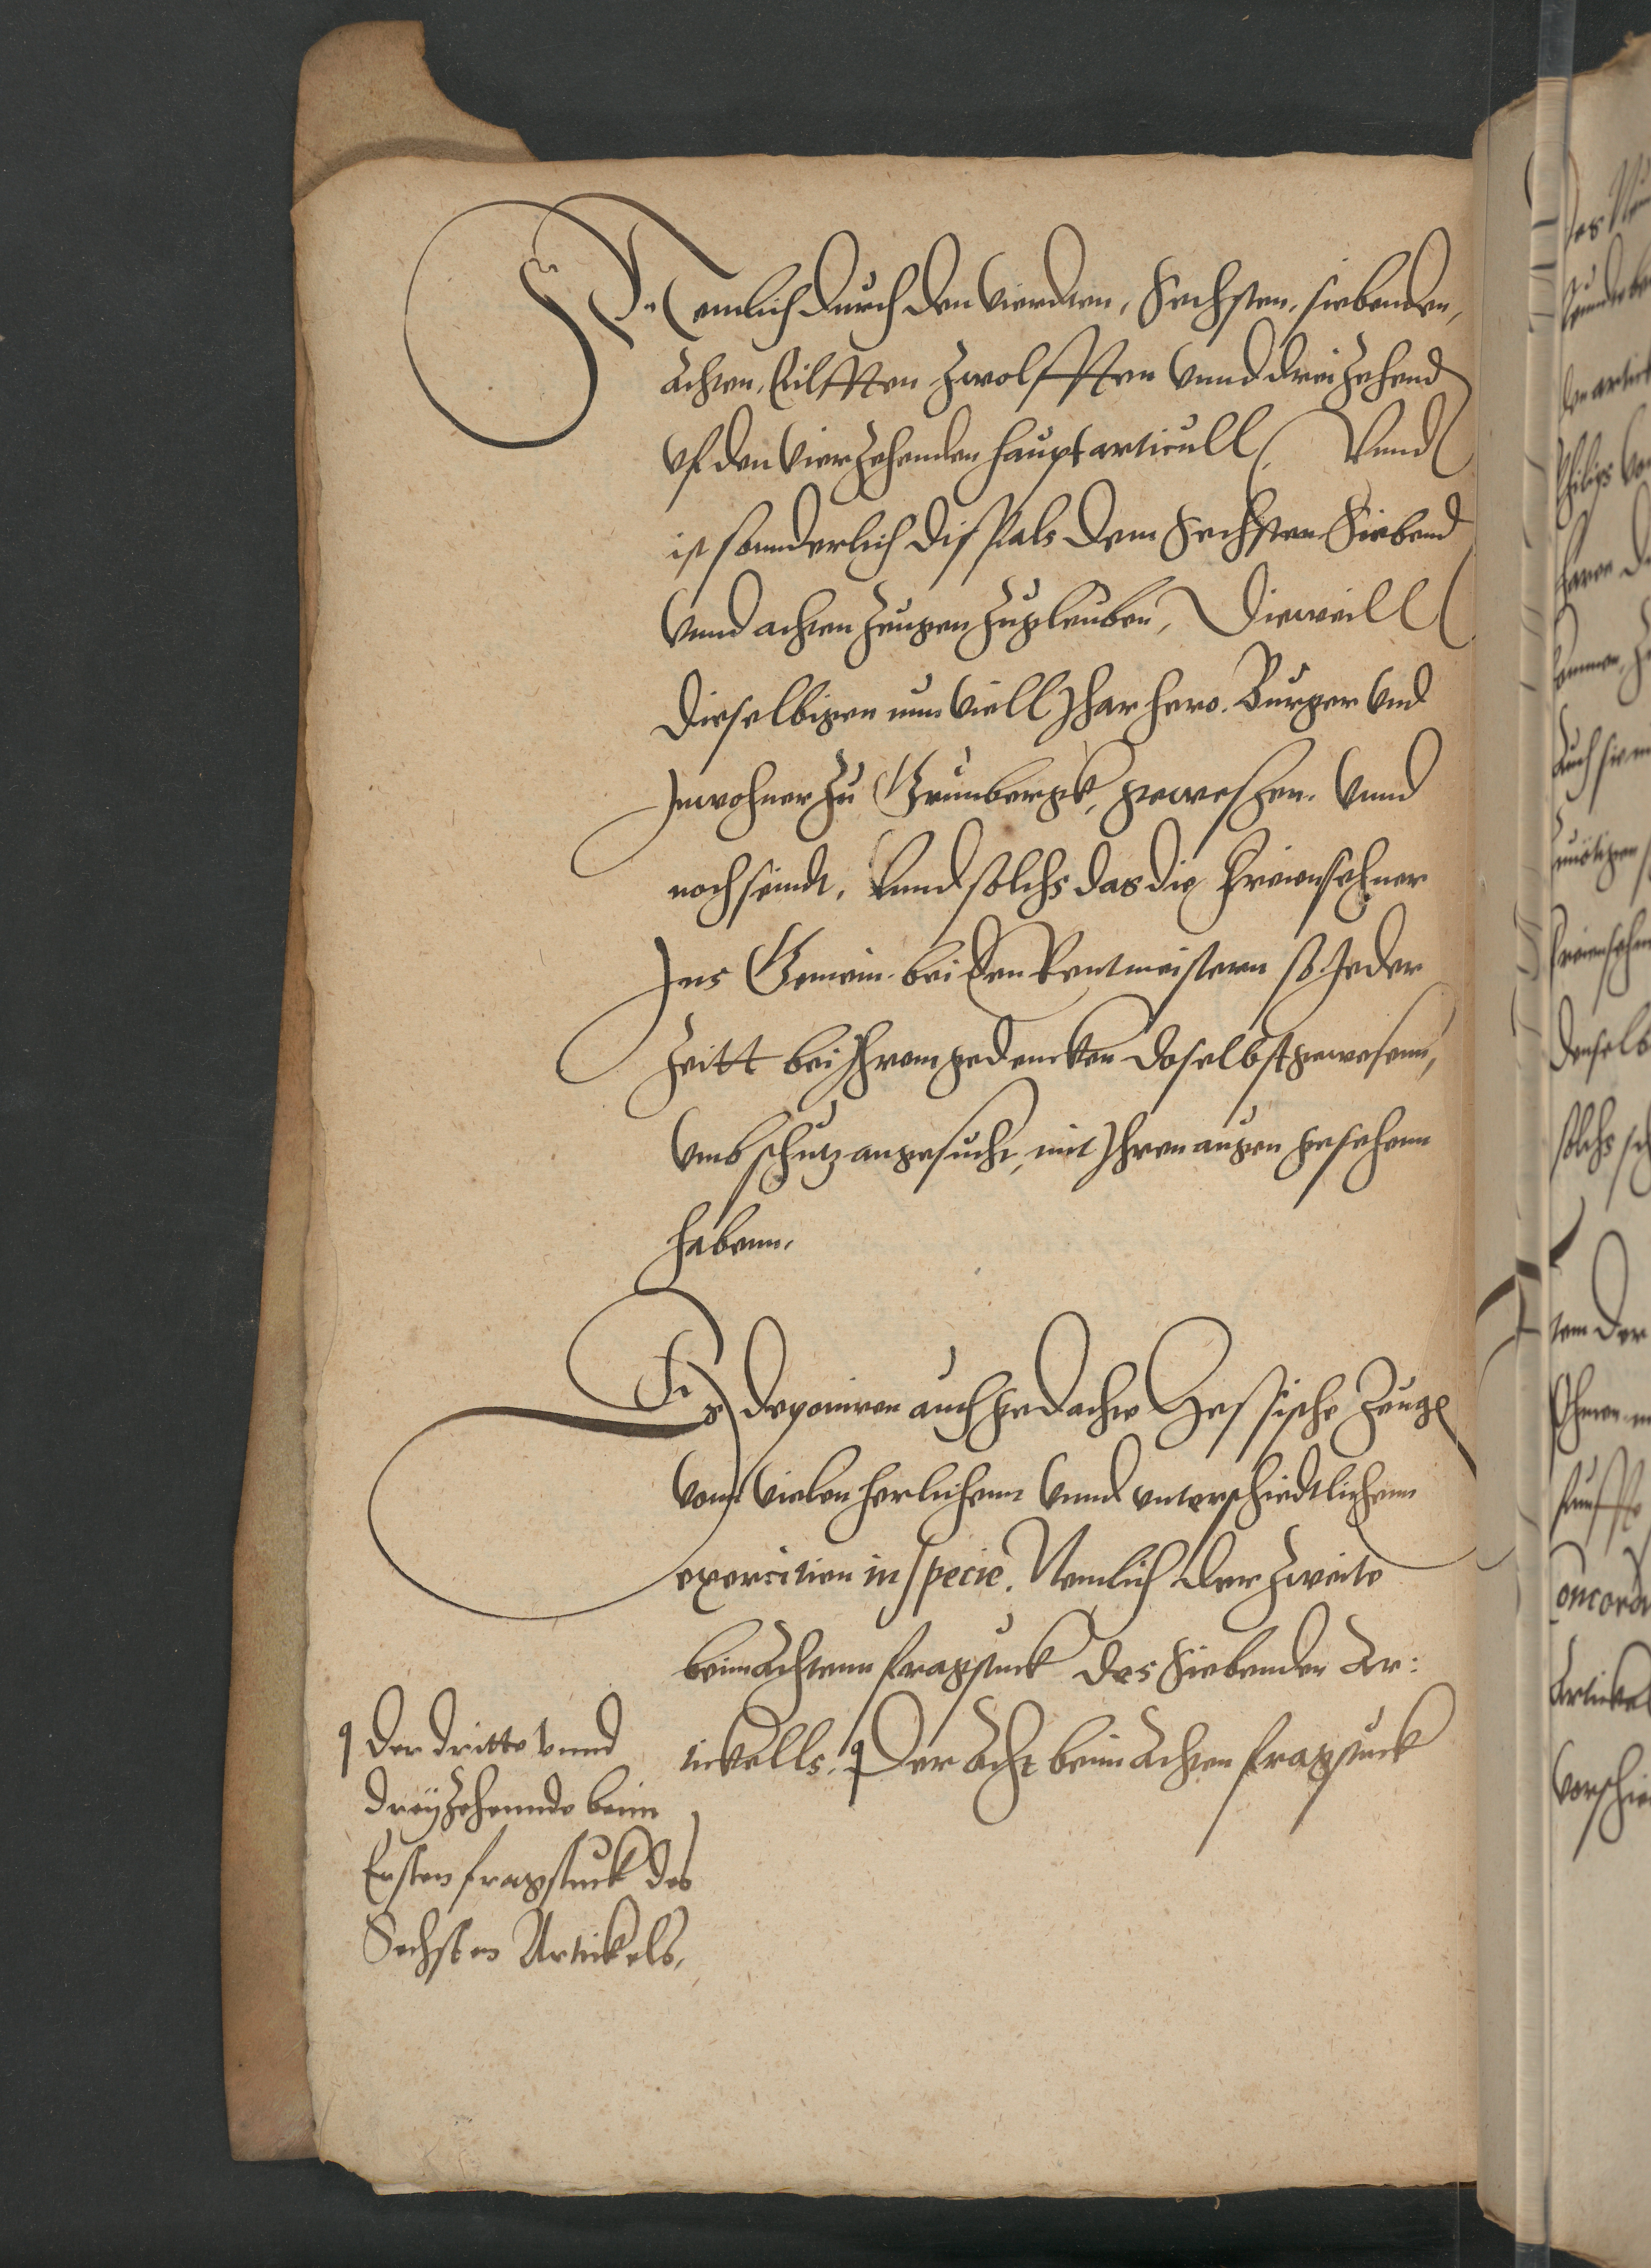 Nemlich durch den vierdten, Sechsten, siebenden,
Achten, Eilfften Zwolfften vnnd dreizehend
vf den vierzehenden hauptarticull, Vnnd
ist sonnderlich disfals dem Sechsten Siebend
vnnd achten zeugen zugleuben, Dieweill
dieselbigen nun viell Jhar hero. Burger vnd
Jnwohner zu Grunbergk, gewesßen. vnnd
noch seindt, Vnnd solchs das die Freiensehner
Jns Gemein bei den Rentmeistern so Jeder
Zeitt bei Jhrem gedencken daselbst gewesenn,
vmb schutz angesucht, mit Jhren augen gesehenn
habenn.
Es deponiren auch gedachte Hessische Zeugen
vonn vielen herlichenn vnnd vnterschiedtlichenn
exercitien in specie. Nemlich der Zweite
beim Achtenn fragstuck des Siebenden Ar:
tickells. Der Acht beim Achten fragstuck
Der dritte vnnd
dreyzehennde beim
Ersten fragstuck des
Sechsten Artickels,